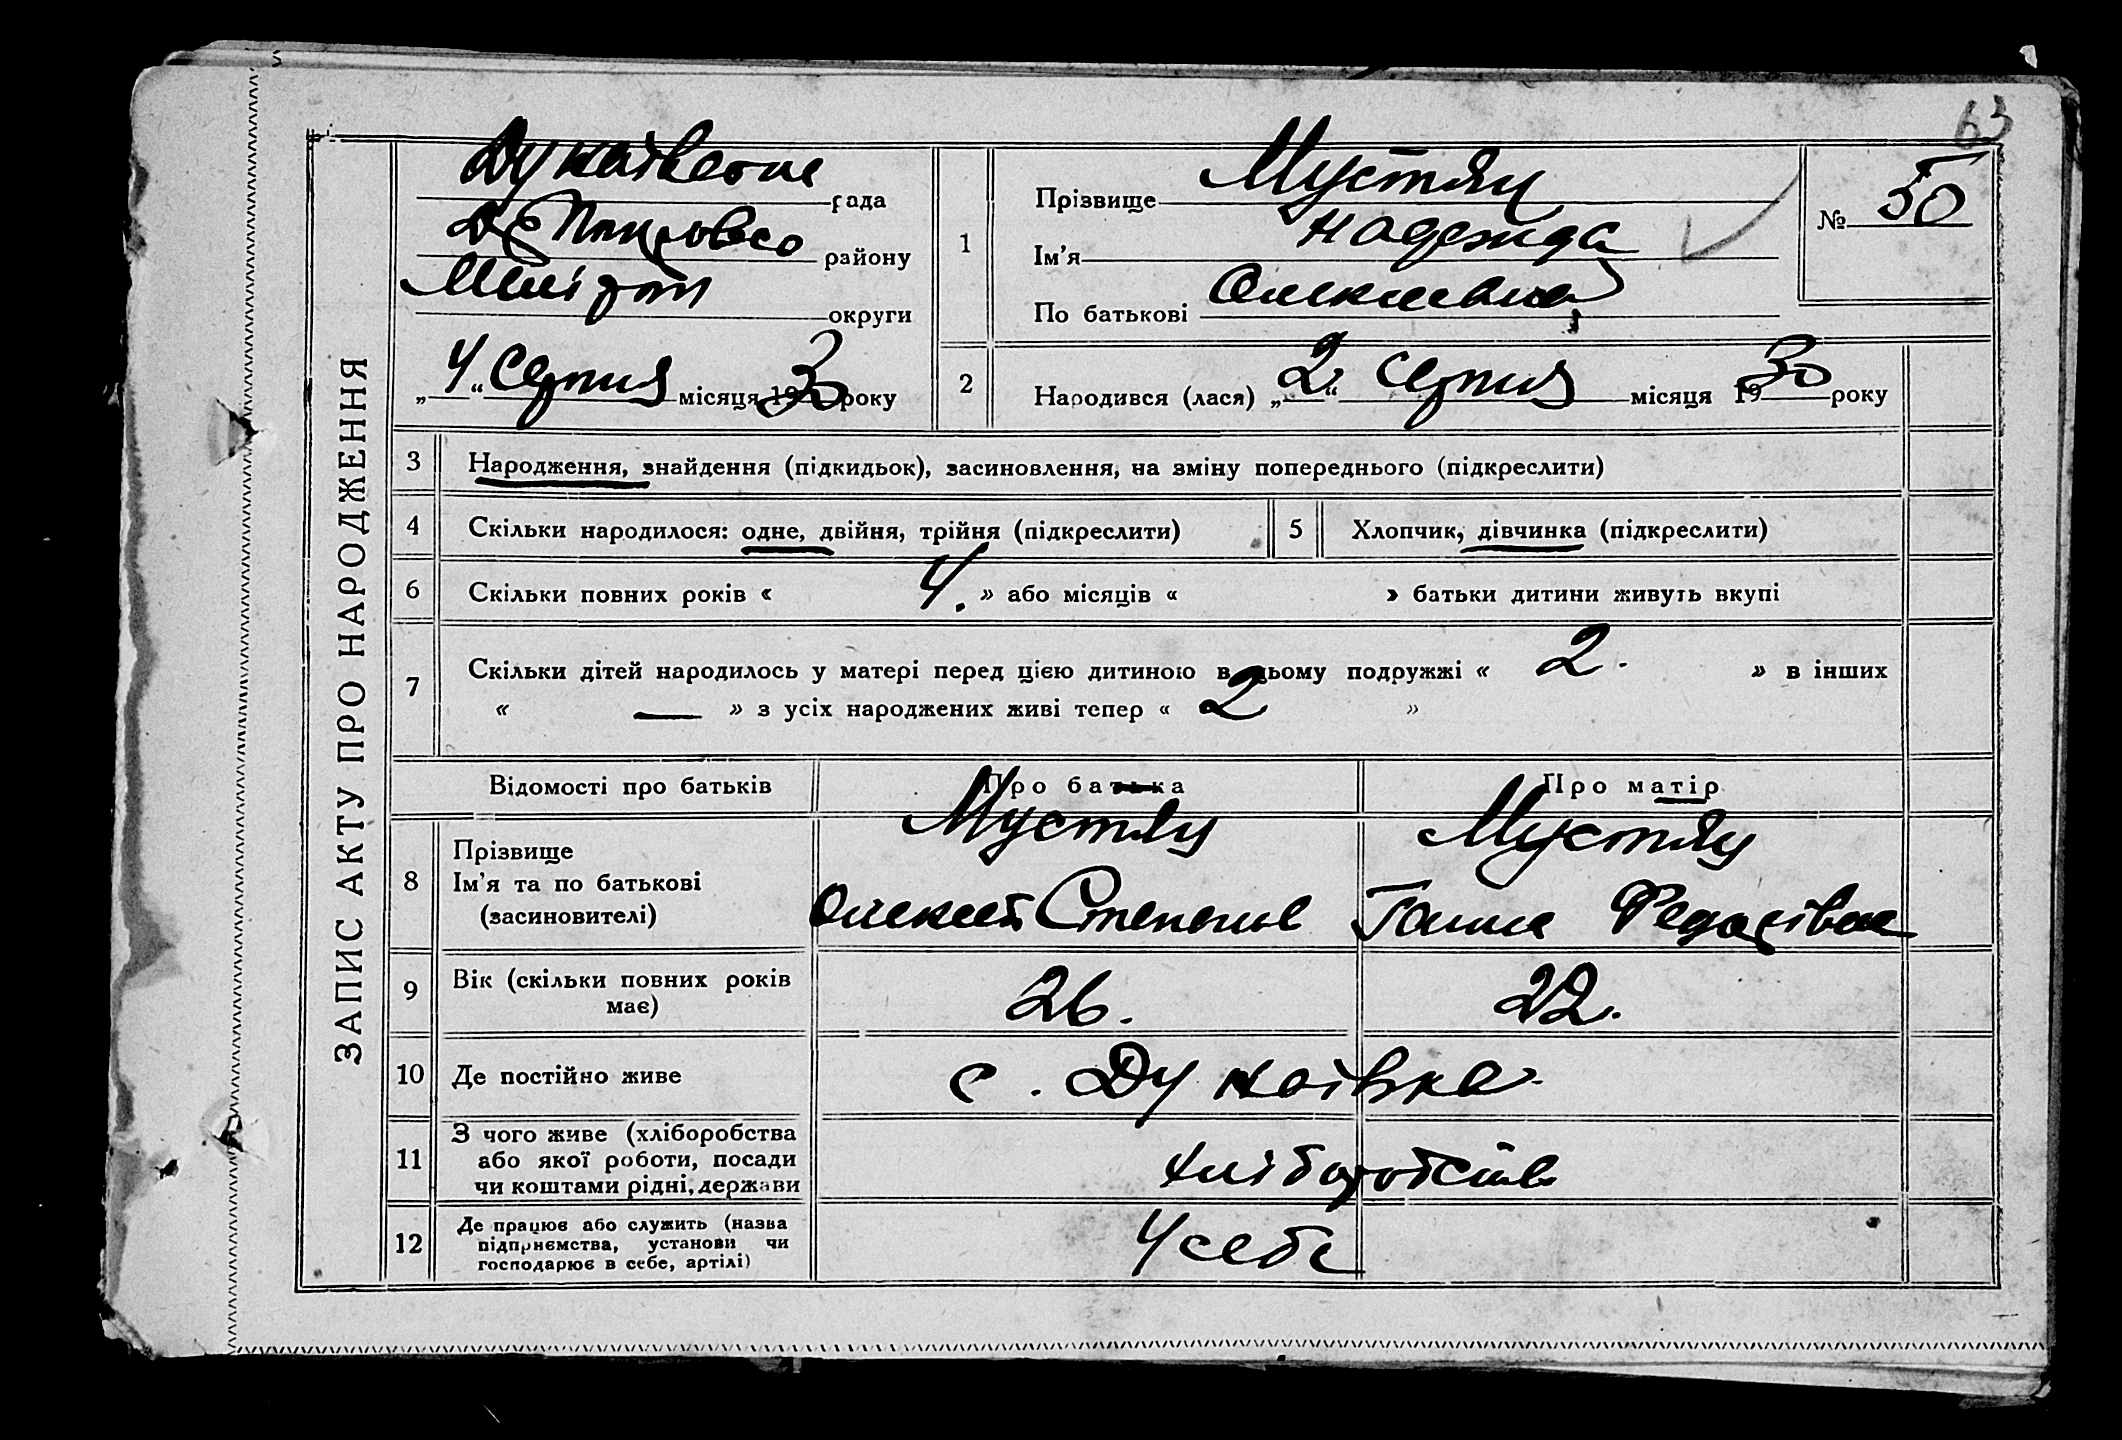 63
ЗАПИС АКТУ ПРО НАРОДЖЕННЯ
рада
району
округи
„4“ Серпня місяця 1930 року
1
Прізвище Мустяц
Ім'я Надежда
По батькові
№ 50
2
Народився (лася) „2“ Серпня місяця 1930 року
3 Народження, знайдення (підкидьок), засиновлення, на зміну попереднього (підкреслити)
4 Скільки народилося: одне, двійня, трійня (підкреслити)
5 Хлопчик, дівчинка (підкреслити)
6 Скільки повних років « 4. » або місяців « » батьки дитини живуть вкупі
7 Скільки дітей народилось у матері перед цією дитиною в цьому подружжі « 2. » в інших
« — » з усіх народжених живі тепер « 2 »
Відомості про батьків Про батька Про матір
8 Прізвище
Ім'я та по батькові
(засиновителі)
Мустяц
Мустяц
Олексей Степанов
Ганна Федосівна
9 Вік (скільки повних років
має)
26. 22.
10 Де постійно живе с. Дунаївка
11 З чого живе (хліборобства
або якої роботи, посади
чи коштами рідні, держави
хліборобств
12 Де працює або служить (назва
підприємства, установи чи
господарює в себе, артілі)
У себе